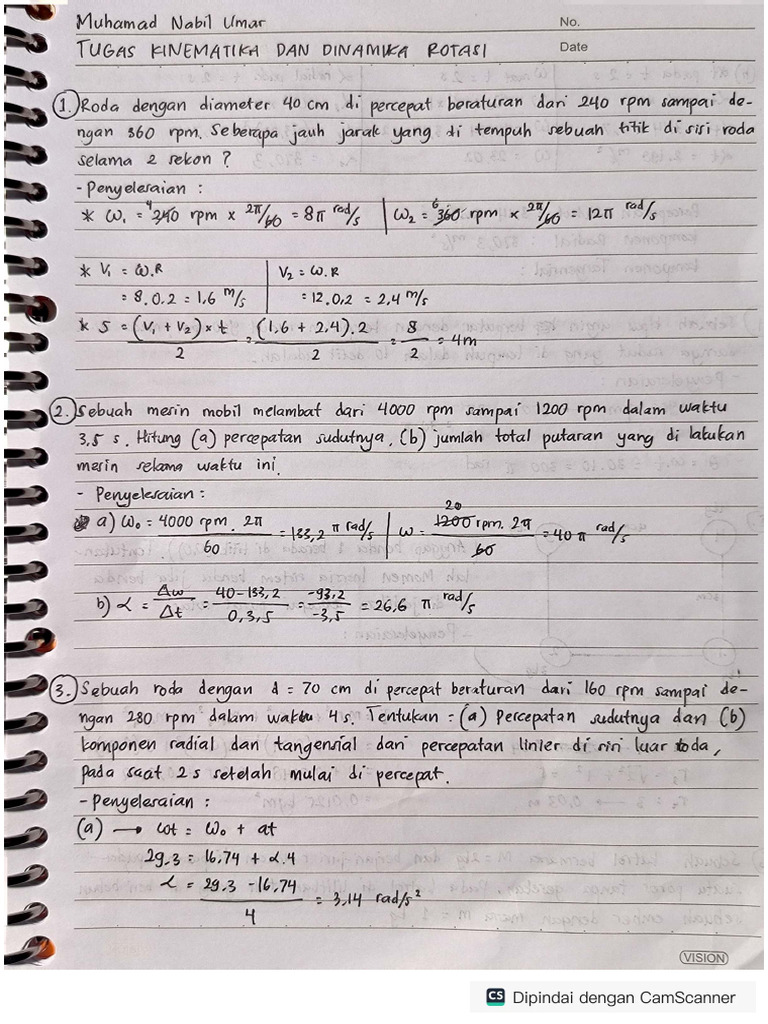 Muhamad Nabil Umar
No.
TUGAS KINEMATIKA DAN DINAMIKA ROTASI
Date
1. Roda dengan diameter 40 cm di percepat beraturan dari 240 rpm sampai de-
ngan 360 rpm. Seberapa jauh jarak yang di tempuh sebuah titik di sisi roda
selama 2 sekon ?
- Penyelesaian :
* ω₁ = 240 rpm × 2π/60 = 8π rad/s | ω₂ = 360 rpm × 2π/60 = 12π rad/s
* V₁ = ω.R | V₂ = ω.R
= 8.0.2 = 1,6 m/s | = 12.0,2 = 2,4 m/s
* S = (V₁ + V₂) × t / 2 = (1.6 + 2.4).2 / 2 = 8/2 = 4m
2. Sebuah mesin mobil melambat dari 4000 rpm sampai 1200 rpm dalam waktu
3,5 s. Hitung (a) percepatan sudutnya, (b) jumlah total putaran yang di lakukan
mesin selama waktu ini.
- Penyelesaian :
a) ω₀ = 4000 rpm. 2π / 60 = 133,2 π rad/s | ω = 1200 rpm. 2π / 60 = 40 π rad/s
b) α = Δω/Δt = 40-133,2 / 0,3,5 = -93,2 / -3,5 = 26,6 π rad/s
3. Sebuah roda dengan d = 70 cm di percepat beraturan dari 160 rpm sampai de-
ngan 280 rpm dalam waktu 4 s. Tentukan : (a) Percepatan sudutnya dan (b)
komponen radial dan tangensial dari percepatan linier di sisi luar roda,
Pada saat 2 s setelah mulai di percepat.
- Penyelesaian :
(a) → ωt = ω₀ + at
29,3 = 16,74 + α.4
α = 29,3 - 16,74 / 4 = 3,14 rad/s²
VISION
CS Dipindai dengan CamScanner